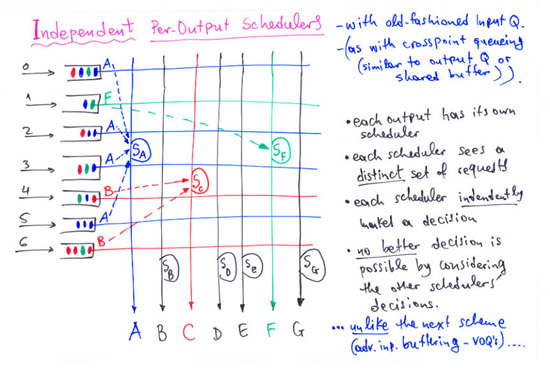 Independent Per-Output Schedulers
- with old-fashioned Input Q.
- (as with crosspoint queueing
(similar to output Q or
shared buffer)).
0
A
1
F
2
A
3
A
4
B
5
A
6
B
S_A
S_F
S_C
S_B
S_D
S_E
S_G
A B C D E F G
• each output has its own
scheduler
• each scheduler sees a
distinct set of requests
• each scheduler indendently
a decision
• no better decision is
possible by considering
the other schedulers'
decisions.
... unlike the next scheme
(adv. inp. buffering - VOQ's) ....